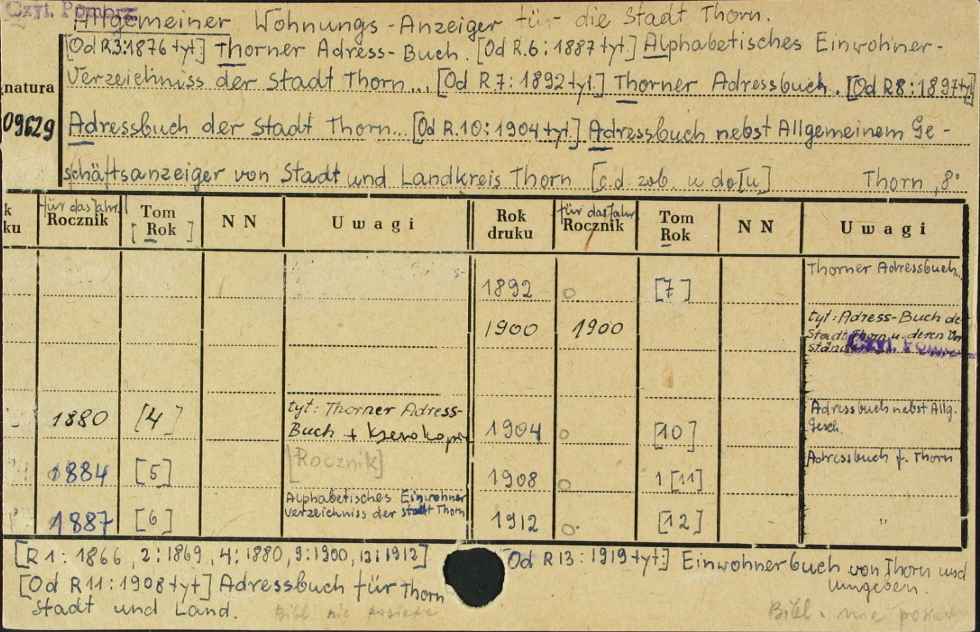 Czyt. Pomorz
Allgemeiner Wohnungs-Anzeiger für die Stadt Thorn.
[Od R.3:1876 tyt.] Thorner Adress-Buch. [Od R.6:1887 tyt.] Alphabetisches Einwohner-
Verzeichniss der Stadt Thorn... [Od R 7:1892 tyt.] Thorner Adressbuch. [Od R8:1897 ty
natura
09629
Adressbuch der Stadt Thorn... [Od R.10:1904 tyt.] Adressbuch nebst Allgemeinem Ge-
schäftsanzeiger von Stadt und Landkreis Thorn [c.d. zob. u dołu] Thorn, 8°
k
ku
für das Jahr
Rocznik
Tom
[Rok]
NN
Uwagi
Rok
druku
für das Jahr
Rocznik
Tom
Rok
NN
Uwagi
1892 o [7] Thorner Adressbuch.
1900 1900 tyt: Adress-Buch der
Stadt Thorn u. deren
Czyt. Pomorz
1880 [4] tyt: Thorner Adress-
Buch + kserokopia
1904 o [10] Adressbuch nebst Allg.
Gesch.
1884 [5] [Rocznik]
1908 o 1[11] Adressbuch f. Thorn
1887 [6] Alphabetisches Einwohner
verzeichniss der Stadt Thorn
1912 o. [12] "
[R 1:1866, 2:1869, 4:1880, 9:1900, 12:1912]
[Od R 11:1908 tyt] Adressbuch für Thorn
Stadt und Land.
[Od R 13:1919 tyt.] Einwohnerbuch von Thorn und
Umgeben.
Bibl. nie
Bibl. nie